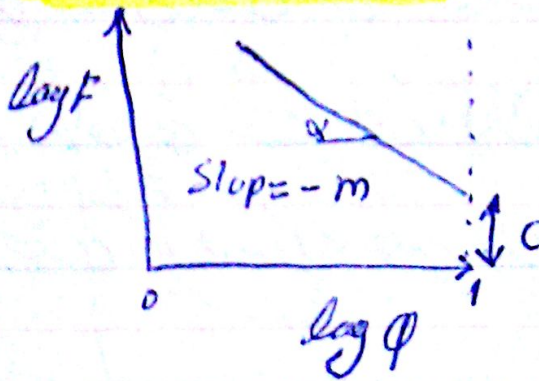 log F
α
Slop = - m
C
0
1
log φ